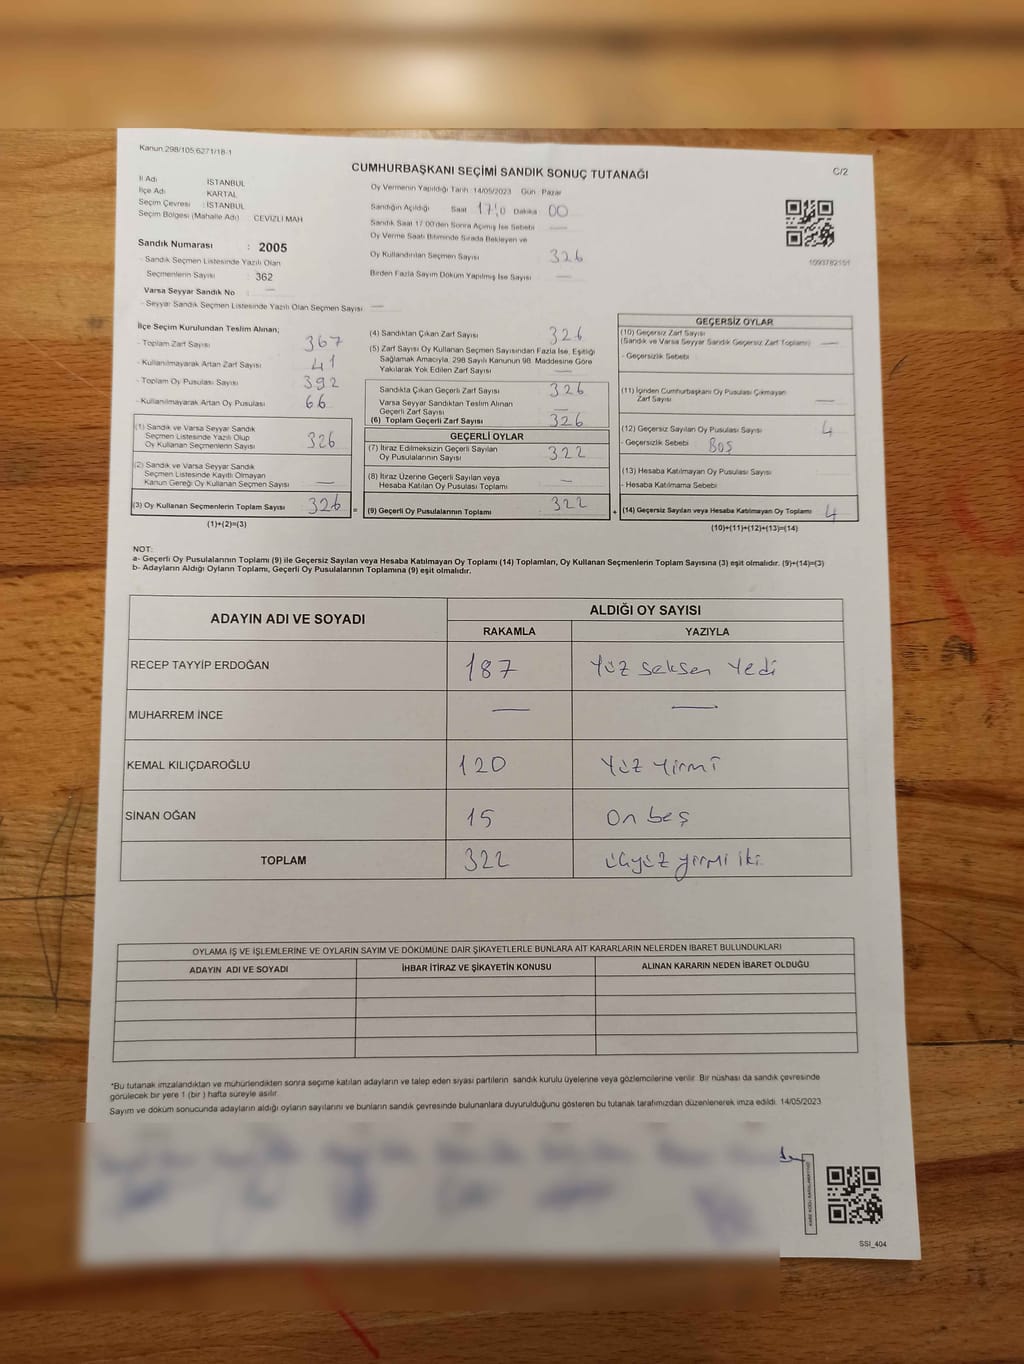 Kanun 298/105;6271/18-1
CUMHURBAŞKANI SEÇİMİ SANDIK SONUÇ TUTANAĞI
C/2
İl Adı : İSTANBUL
İlçe Adı : KARTAL
Seçim Çevresi : İSTANBUL
Seçim Bölgesi (Mahalle Adı) CEVİZLİ MAH
Sandık Numarası : 2005
- Sandık Seçmen Listesinde Yazılı Olan
Seçmenlerin Sayısı : 362
Varsa Seyyar Sandık No : —
- Seyyar Sandık Seçmen Listesinde Yazılı Olan Seçmen Sayısı —
Oy Vermenin Yapıldığı Tarih :14/05/2023 Gün : Pazar
Sandığın Açıldığı Saat 17:0 Dakika 00
Sandık Saat 17:00'den Sonra Açılmış İse Sebebi —
Oy Verme Saati Bitiminde Sırada Bekleyen ve
Oy Kullandırılan Seçmen Sayısı 326
Birden Fazla Sayım Döküm Yapılmış İse Sayısı —
1093782151
İlçe Seçim Kurulundan Teslim Alınan;
- Toplam Zarf Sayısı 367
- Kullanılmayarak Artan Zarf Sayısı 41
- Toplam Oy Pusulası Sayısı 392
- Kullanılmayarak Artan Oy Pusulası 66
(1) Sandık ve Varsa Seyyar Sandık
Seçmen Listesinde Yazılı Olup
Oy Kullanan Seçmenlerin Sayısı 326
(2) Sandık ve Varsa Seyyar Sandık
Seçmen Listesinde Kayıtlı Olmayan
Kanun Gereği Oy Kullanan Seçmen Sayısı —
(3) Oy Kullanan Seçmenlerin Toplam Sayısı 326 =
(1)+(2)=(3)
(4) Sandıktan Çıkan Zarf Sayısı 326
(5) Zarf Sayısı Oy Kullanan Seçmen Sayısından Fazla İse, Eşitliği
Sağlamak Amacıyla, 298 Sayılı Kanunun 98. Maddesine Göre
Yakılarak Yok Edilen Zarf Sayısı —
Sandıkta Çıkan Geçerli Zarf Sayısı 326
Varsa Seyyar Sandıktan Teslim Alınan
Geçerli Zarf Sayısı —
(6) Toplam Geçerli Zarf Sayısı 326
GEÇERLİ OYLAR
(7) İtiraz Edilmeksizin Geçerli Sayılan
Oy Pusulalarının Sayısı 322
(8) İtiraz Üzerine Geçerli Sayılan veya
Hesaba Katılan Oy Pusulası Toplamı —
(9) Geçerli Oy Pusulalarının Toplamı 322 +
GEÇERSİZ OYLAR
(10) Geçersiz Zarf Sayısı
(Sandık ve Varsa Seyyar Sandık Geçersiz Zarf Toplamı) —
- Geçersizlik Sebebi
(11) İçinden Cumhurbaşkanı Oy Pusulası Çıkmayan
Zarf Sayısı —
(12) Geçersiz Sayılan Oy Pusulası Sayısı 4
- Geçersizlik Sebebi Boş
(13) Hesaba Katılmayan Oy Pusulası Sayısı
- Hesaba Katılmama Sebebi
(14) Geçersiz Sayılan veya Hesaba Katılmayan Oy Toplamı 4
(10)+(11)+(12)+(13)=(14)
NOT:
a- Geçerli Oy Pusulalarının Toplamı (9) ile Geçersiz Sayılan veya Hesaba Katılmayan Oy Toplamı (14) Toplamları, Oy Kullanan Seçmenlerin Toplam Sayısına (3) eşit olmalıdır. (9)+(14)=(3)
b- Adayların Aldığı Oyların Toplamı, Geçerli Oy Pusulalarının Toplamına (9) eşit olmalıdır.
ADAYIN ADI VE SOYADI ALDIĞI OY SAYISI
RAKAMLA YAZIYLA
RECEP TAYYİP ERDOĞAN 187 Yüz seksen Yedi
MUHARREM İNCE — —
KEMAL KILIÇDAROĞLU 120 Yüz Yirmi
SİNAN OĞAN 15 On beş
TOPLAM 322 üçyüz yirmi iki
OYLAMA İŞ VE İŞLEMLERİNE VE OYLARIN SAYIM VE DÖKÜMÜNE DAİR ŞİKAYETLERLE BUNLARA AİT KARARLARIN NELERDEN İBARET BULUNDUKLARI
ADAYIN ADI VE SOYADI İHBAR İTİRAZ VE ŞİKAYETİN KONUSU ALINAN KARARIN NEDEN İBARET OLDUĞU
*Bu tutanak imzalandıktan ve mühürlendikten sonra seçime katılan adayların ve talep eden siyasi partilerin sandık kurulu üyelerine veya gözlemcilerine verilir. Bir nüshası da sandık çevresinde
görülecek bir yere 1 (bir ) hafta süreyle asılır.
Sayım ve döküm sonucunda adayların aldığı oyların sayılarını ve bunların sandık çevresinde bulunanlara duyurulduğunu gösteren bu tutanak tarafımızdan düzenlenerek imza edildi. 14/05/2023
SSI_404